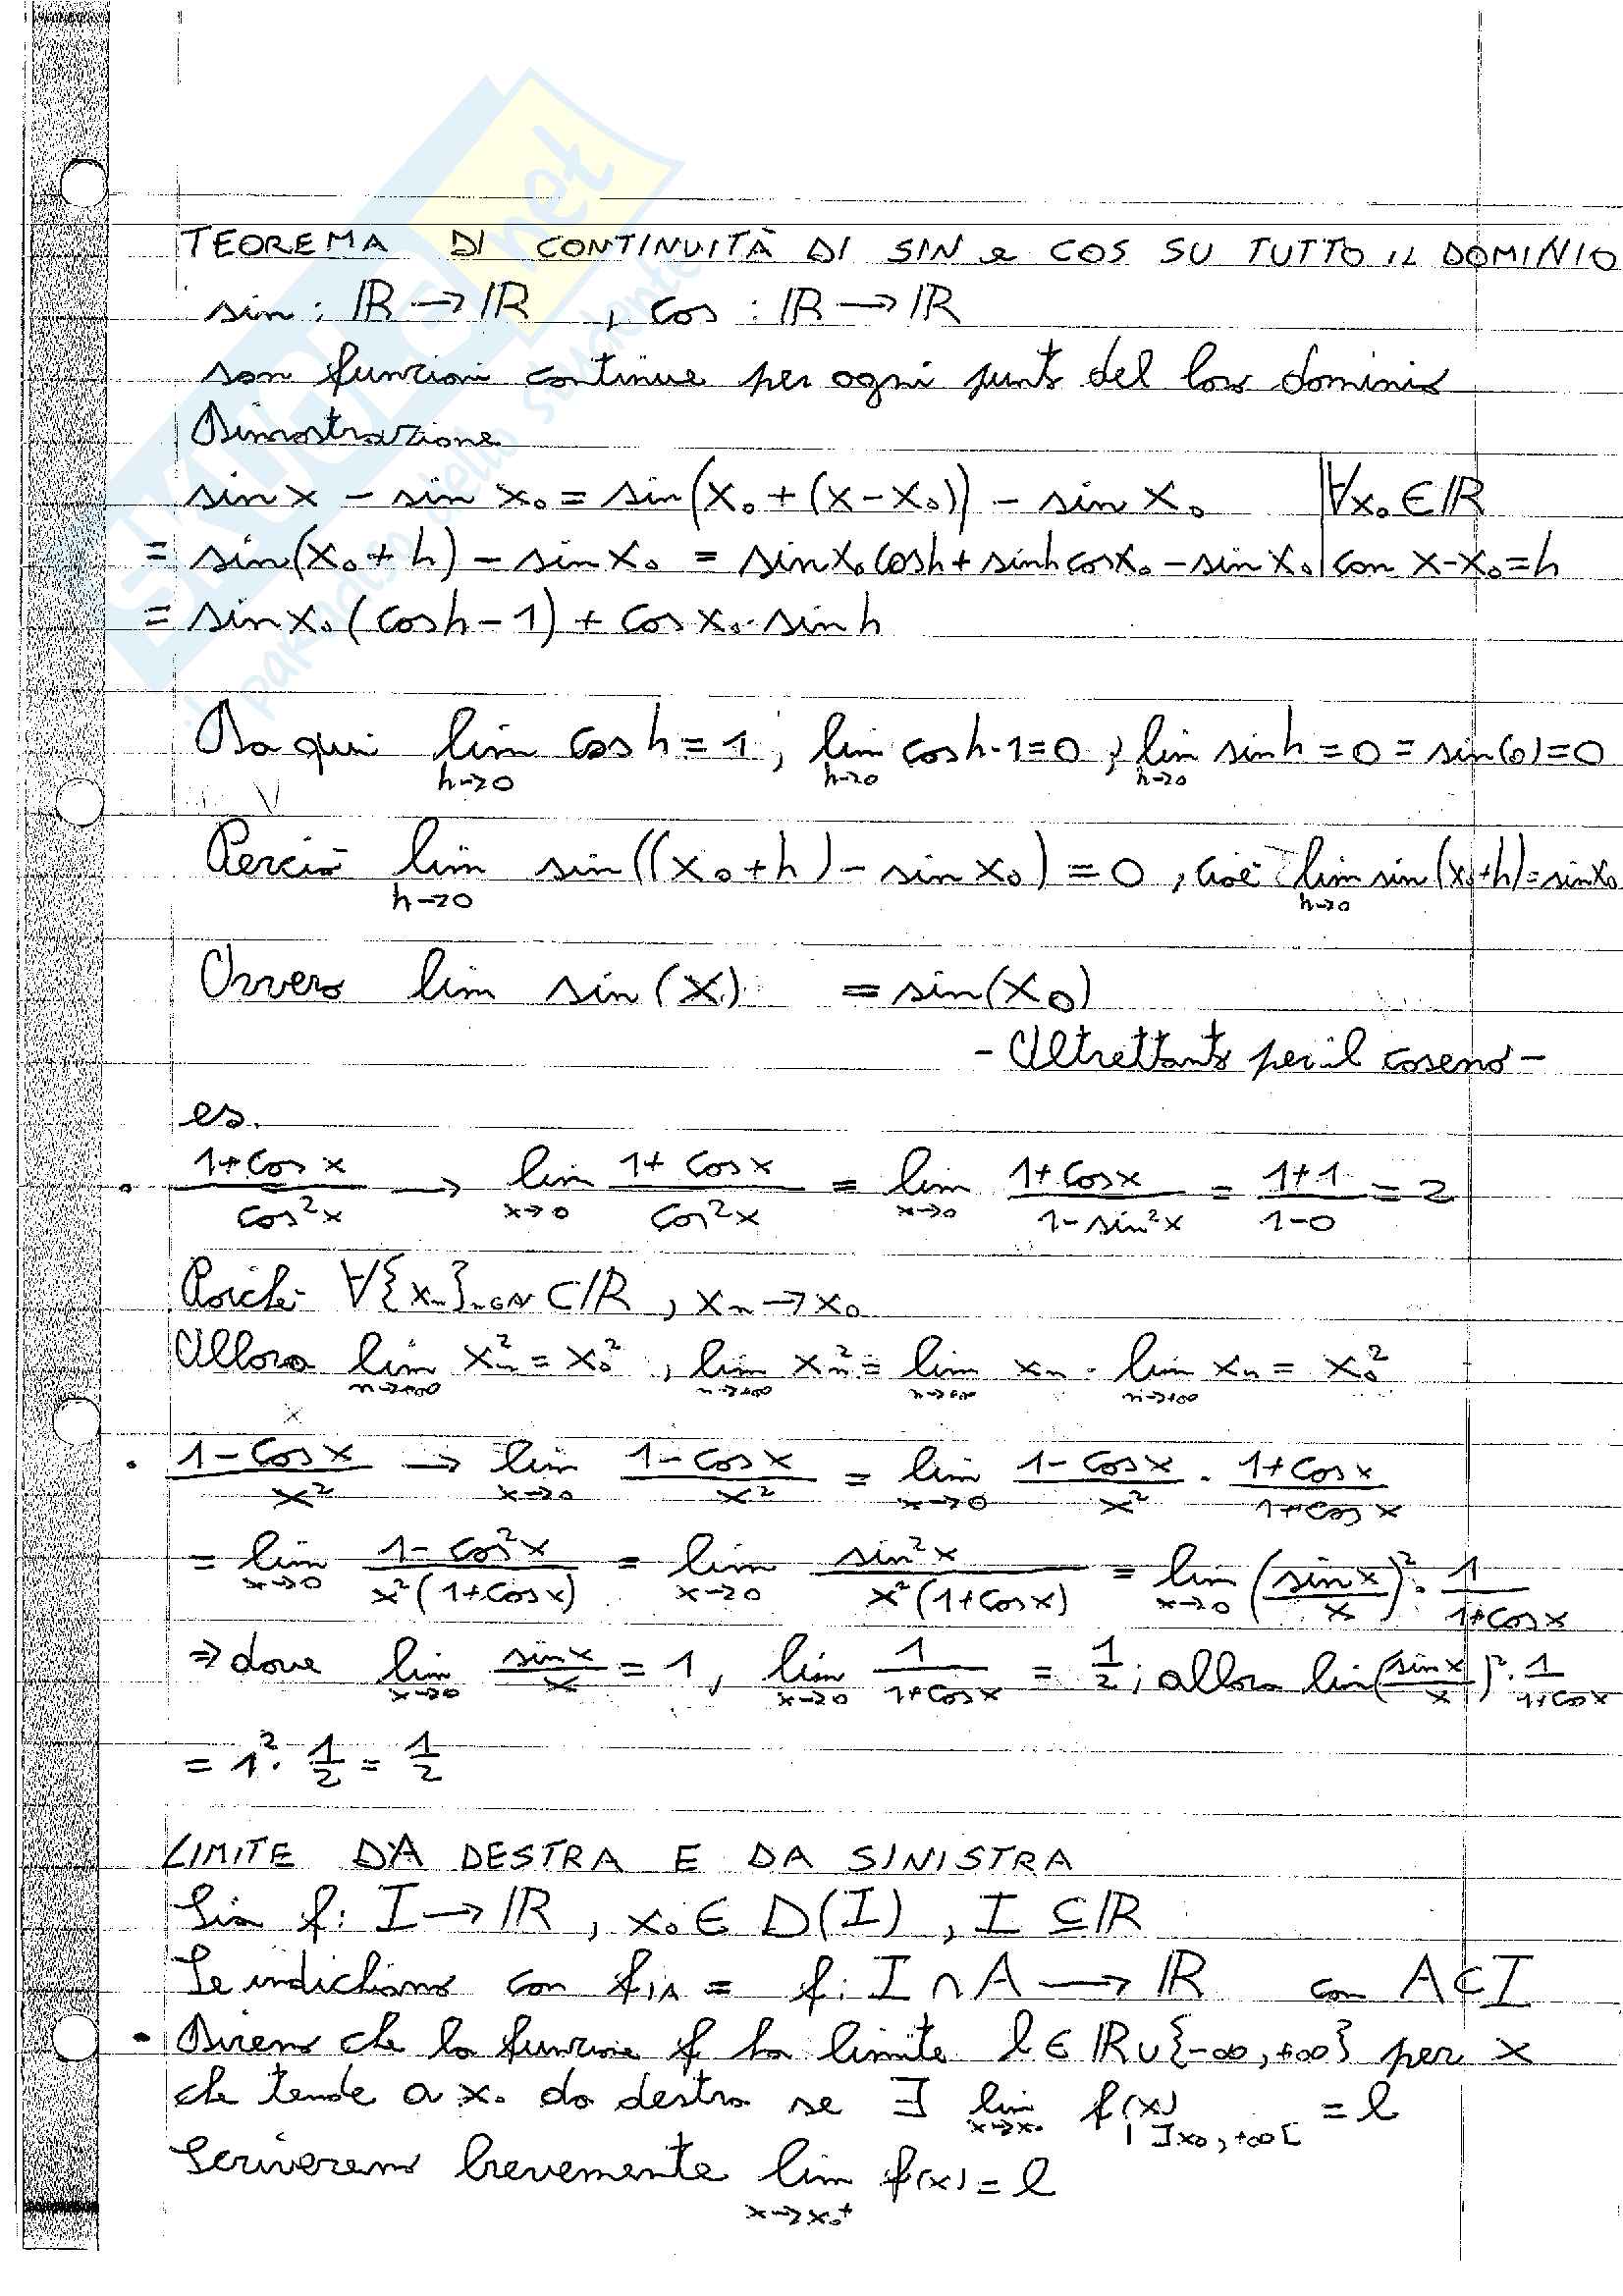 TEOREMA DI CONTINUITÀ DI SIN e COS SU TUTTO IL DOMINIO
sin : ℝ → ℝ , cos : ℝ → ℝ
son funzioni continue per ogni punto del loro dominio
Dimostrazione
sin x - sin x₀ = sin(x₀ + (x-x₀)) - sin x₀ | ∀x₀ ∈ ℝ
= sin(x₀+h) - sin x₀ = sin x₀ cos h + sin h cos x₀ - sin x₀ | con x-x₀=h
= sin x₀ (cos h - 1) + cos x₀ · sin h
Da qui lim h→0 cos h = 1 ; lim h→0 cos h - 1 = 0 ; lim h→0 sin h = 0 = sin(0) = 0
Perciò lim h→0 sin((x₀+h) - sin x₀) = 0 , cioè lim h→0 sin(x₀+h) = sin x₀
Ovvero lim sin(x) = sin(x₀)
- Altrettanto per il coseno -
es.
• (1+cos x)/(cos²x) → lim x→0 (1+cos x)/(cos²x) = lim x→0 (1+cos x)/(1-sin²x) = (1+1)/(1-0) = 2
Poiché ∀{xₙ}ₙ∈ℕ ⊂ ℝ , xₙ → x₀
Allora lim n→+∞ xₙ² = x₀² , lim n→+∞ xₙ² = lim n→+∞ xₙ · lim n→+∞ xₙ = x₀²
• (1-cos x)/x² → lim x→0 (1-cos x)/x² = lim x→0 (1-cos x)/x² · (1+cos x)/(1+cos x)
= lim x→0 (1-cos²x)/(x²(1+cos x)) = lim x→0 (sin²x)/(x²(1+cos x)) = lim x→0 (sin x/x)² · 1/(1+cos x)
⇒ dove lim x→0 sin x/x = 1 , lim x→0 1/(1+cos x) = 1/2 ; allora lim (sin x/x)² · 1/(1+cos x)
= 1² · 1/2 = 1/2
LIMITE DA DESTRA E DA SINISTRA
Sia f: I → ℝ , x₀ ∈ D(I) , I ⊆ ℝ
Se indichiamo con f|A = f: I ∩ A → ℝ con A ⊂ I
• Diremo che la funzione f ha limite l ∈ ℝ∪{-∞,+∞} per x
che tende a x₀ da destra se ∃ lim x→x₀ f(x)| ]x₀,+∞[ = l
Scriveremo brevemente lim x→x₀⁺ f(x) = l